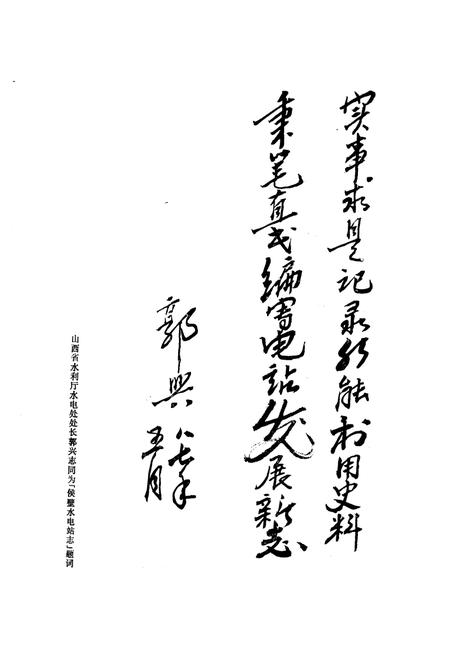 实事求是记录水能利用史料
秉笔直书编写电站发展新志
郭兴
八七年
五月
山西省水利厅水电处处长郭兴志同为「侯壁水电站志」题词